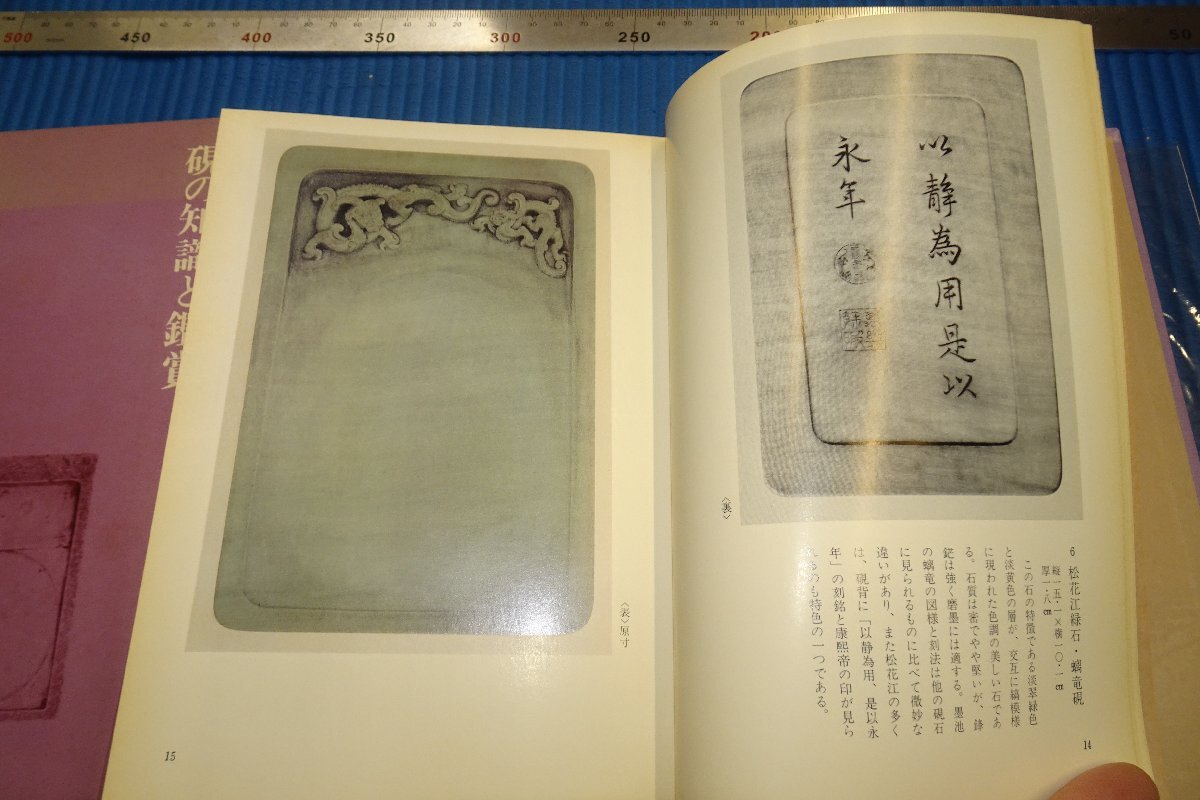 500
450
400
350
300
250
50
硯の知識と鑑賞
以静為用是以
永年
〈裏〉
6 松花江緑石・螭竜硯
縦一五・一×横一〇・一㎝
厚一・八㎝
この石の特徴である淡翠緑色
と淡黄色の層が、交互に縞模様
に現われた色調の美しい石であ
る。石質は密でやや堅いが、鋒
鋩は強く磨墨には適する。墨池
の螭竜の図様と刻法は他の硯石
に見られるものに比べて微妙な
違いがあり、また松花江の多く
は、硯背に「以静為用、是以永
年」の刻銘と康熙帝の印が見ら
れるのも特色の一つである。
14
〈表〉原寸
15